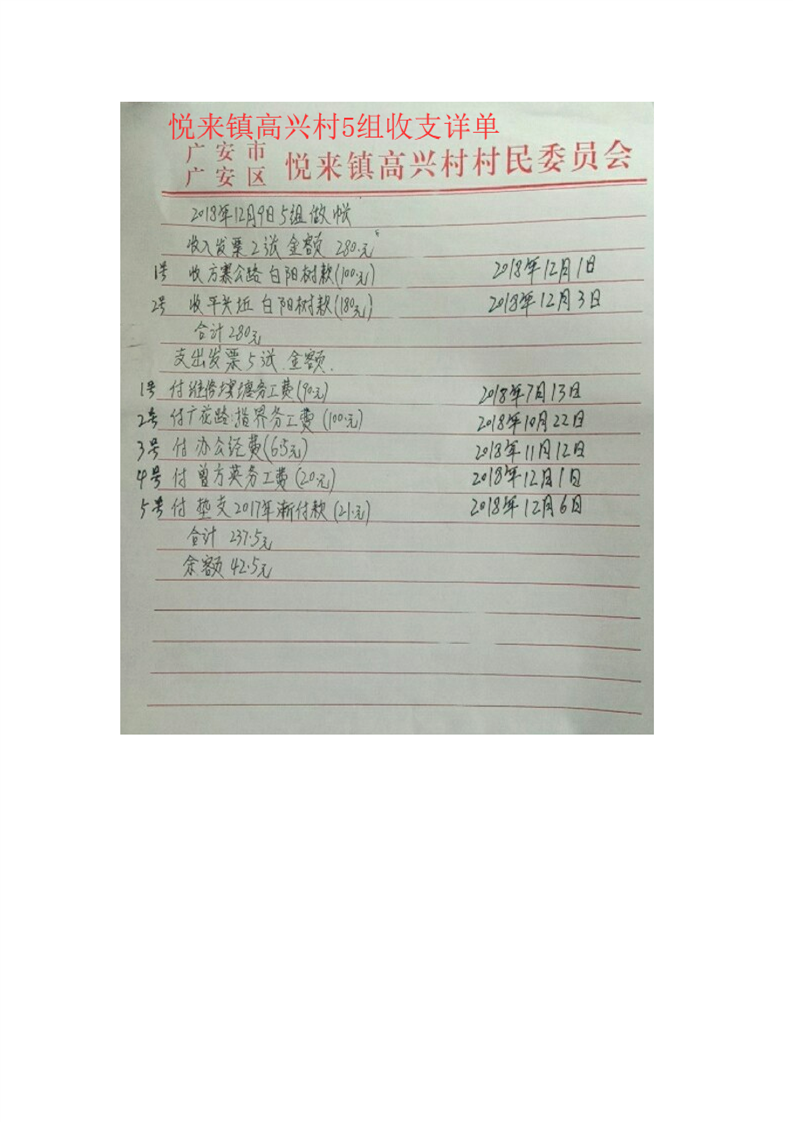 悦来镇高兴村5组收支详单
广安市
广安区 悦来镇高兴村村民委员会
2018年12月9日5组做帐
收入发票2张 金额 280.元
1号 收方寨公路白阳树款(100.元) 2018年12月1日
2号 收平 白阳树款(180元) 2018年12月3日
合计280元
支出发票5张 金额.
1号 付 务工费(90.元) 2018年7月13日
2号 付广花路.指界务工费(100.元) 2018年10月22日
3号 付办公经费(6.5元) 2018年11月12日
4号 付曾方英务工费(20.元) 2018年12月1日
5号 付垫支2017年渐付款(21.元) 2018年12月6日
合计 237.5元
余额 42.5元